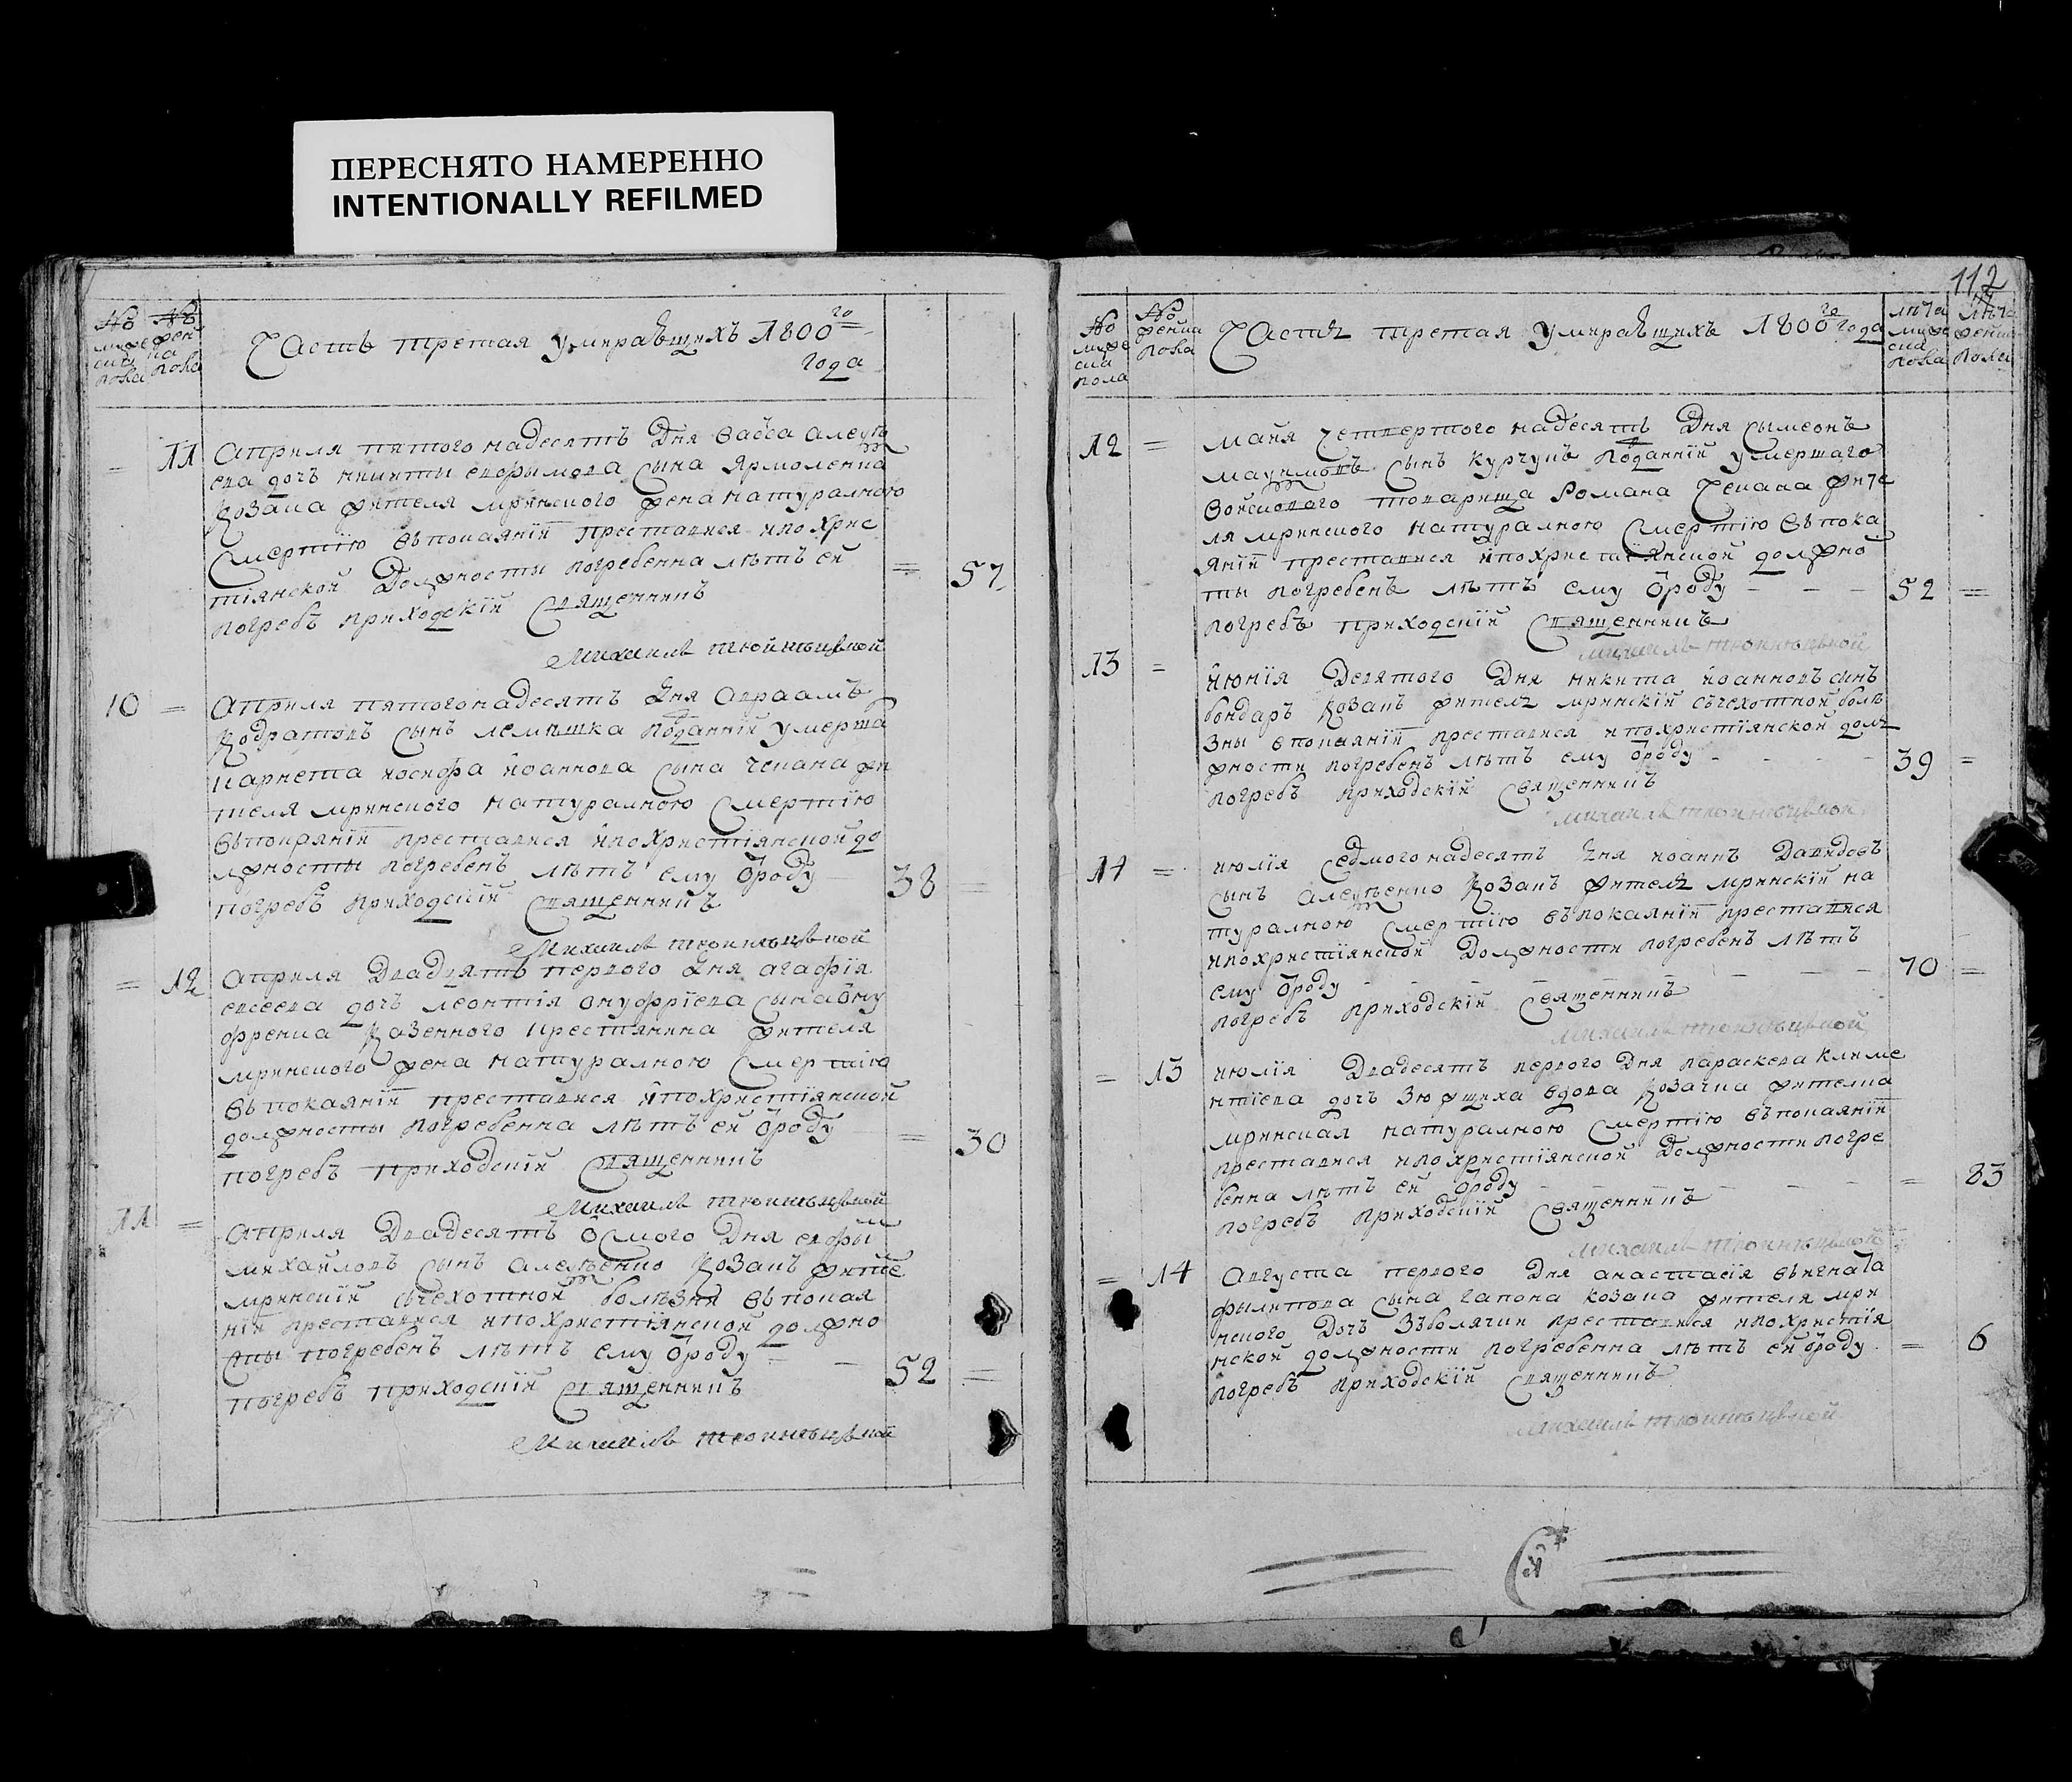 ПЕРЕСНЯТО НАМЕРЕННО
INTENTIONALLY REFILMED
112
Часть третая умиравшихъ 1800го
года
11 Априля пятого надесять дня васса алеѯѣ
ева дочъ никиты евфимова сына Ярмоленка
козака жителя мринского жена натуралною
смертїю въпокаянїи преставися ипохрис
тїянской должности погребенна лѣтъ ей
= 57
погребъ приходскїй священникъ
Михаилъ
10 = Априля пятогонадесять дня авраамъ
кодратовъ сынъ лемѣшка подданнїй умерша
корнета иосифа иоаннова сына чепана жи
теля мринского натуралною смертїю
въпокаянїи преставися ипохристїянской до
лжности погребенъ лѣтъ ему ѿроду 38 =
погребъ приходскїй священникъ
Михаилъ
= 12 Априля двадцять первого дня агафїя
евсеева дочъ леонтїя онуфрїева сына ону
френка козенного крестянина жителя
мринского жена натуралною смертїю
въпокаянїи преставися ипохристїянской
должности погребенна лѣтъ ей ѿроду = 30
погребъ приходскїй священникъ
Михаилъ
11 = Априля двадесять осмого дня евфим
михайловъ сынъ алеѯѣенко козакъ жите
мринскїй счехотной болѣзни въпокая
нїи преставися ипохристїянской должно
сты погребенъ лѣтъ ему ѿроду 52 =
погребъ приходскїй священникъ
Михаилъ
Часть третая умиравшихъ 1800го года
12 = майя четвертого надесять дня сымеонъ
маѯимовъ сынъ курчунъ подданнїй умершаго
войскового товарища Романа Чепана жите
ля мринского натуралною смертїю въпока
янїи преставися ипохристїянской должно
ты погребенъ лѣтъ ему ѿроду 52 =
погребъ приходскїй священникъ
Михаилъ
13 = июнїя девятого дня никита иоанновъ сынъ
бондаръ козакъ житель мринскїй съчехотной болѣ
зны впокаянїи преставися ипохристїянской дол
жности погребенъ лѣтъ ему ѿроду 39 =
погребъ приходскїй священникъ
Михаилъ
14 = июлїя седмого надесять дня иоаннъ давидовъ
сынъ алеѯѣенко козакъ житель мринскїй на
туралною смертїю въпокаянїи преставися
ипохристїянской должности погребенъ лѣтъ
ему ѿроду 70 =
погребъ приходскїй священникъ
Михаилъ
= 13 июлїя двадесять первого дня параскева климе
нтїева дочъ Зюзщиха вдова козачка жителка
мринская натуралною смертїю въпокаянїи
преставися ипохристїянской должности погре
бенна лѣтъ ей ѿроду = 83
погребъ приходскїй священникъ
Михаилъ
= 14 Августа первого дня анастасїя
филипова сына гапона козака жителя мри
нского дочъ преставися ипохристїя
нской должности погребенна лѣтъ ей ѿроду = 6
погребъ приходскїй священникъ
Михаилъ